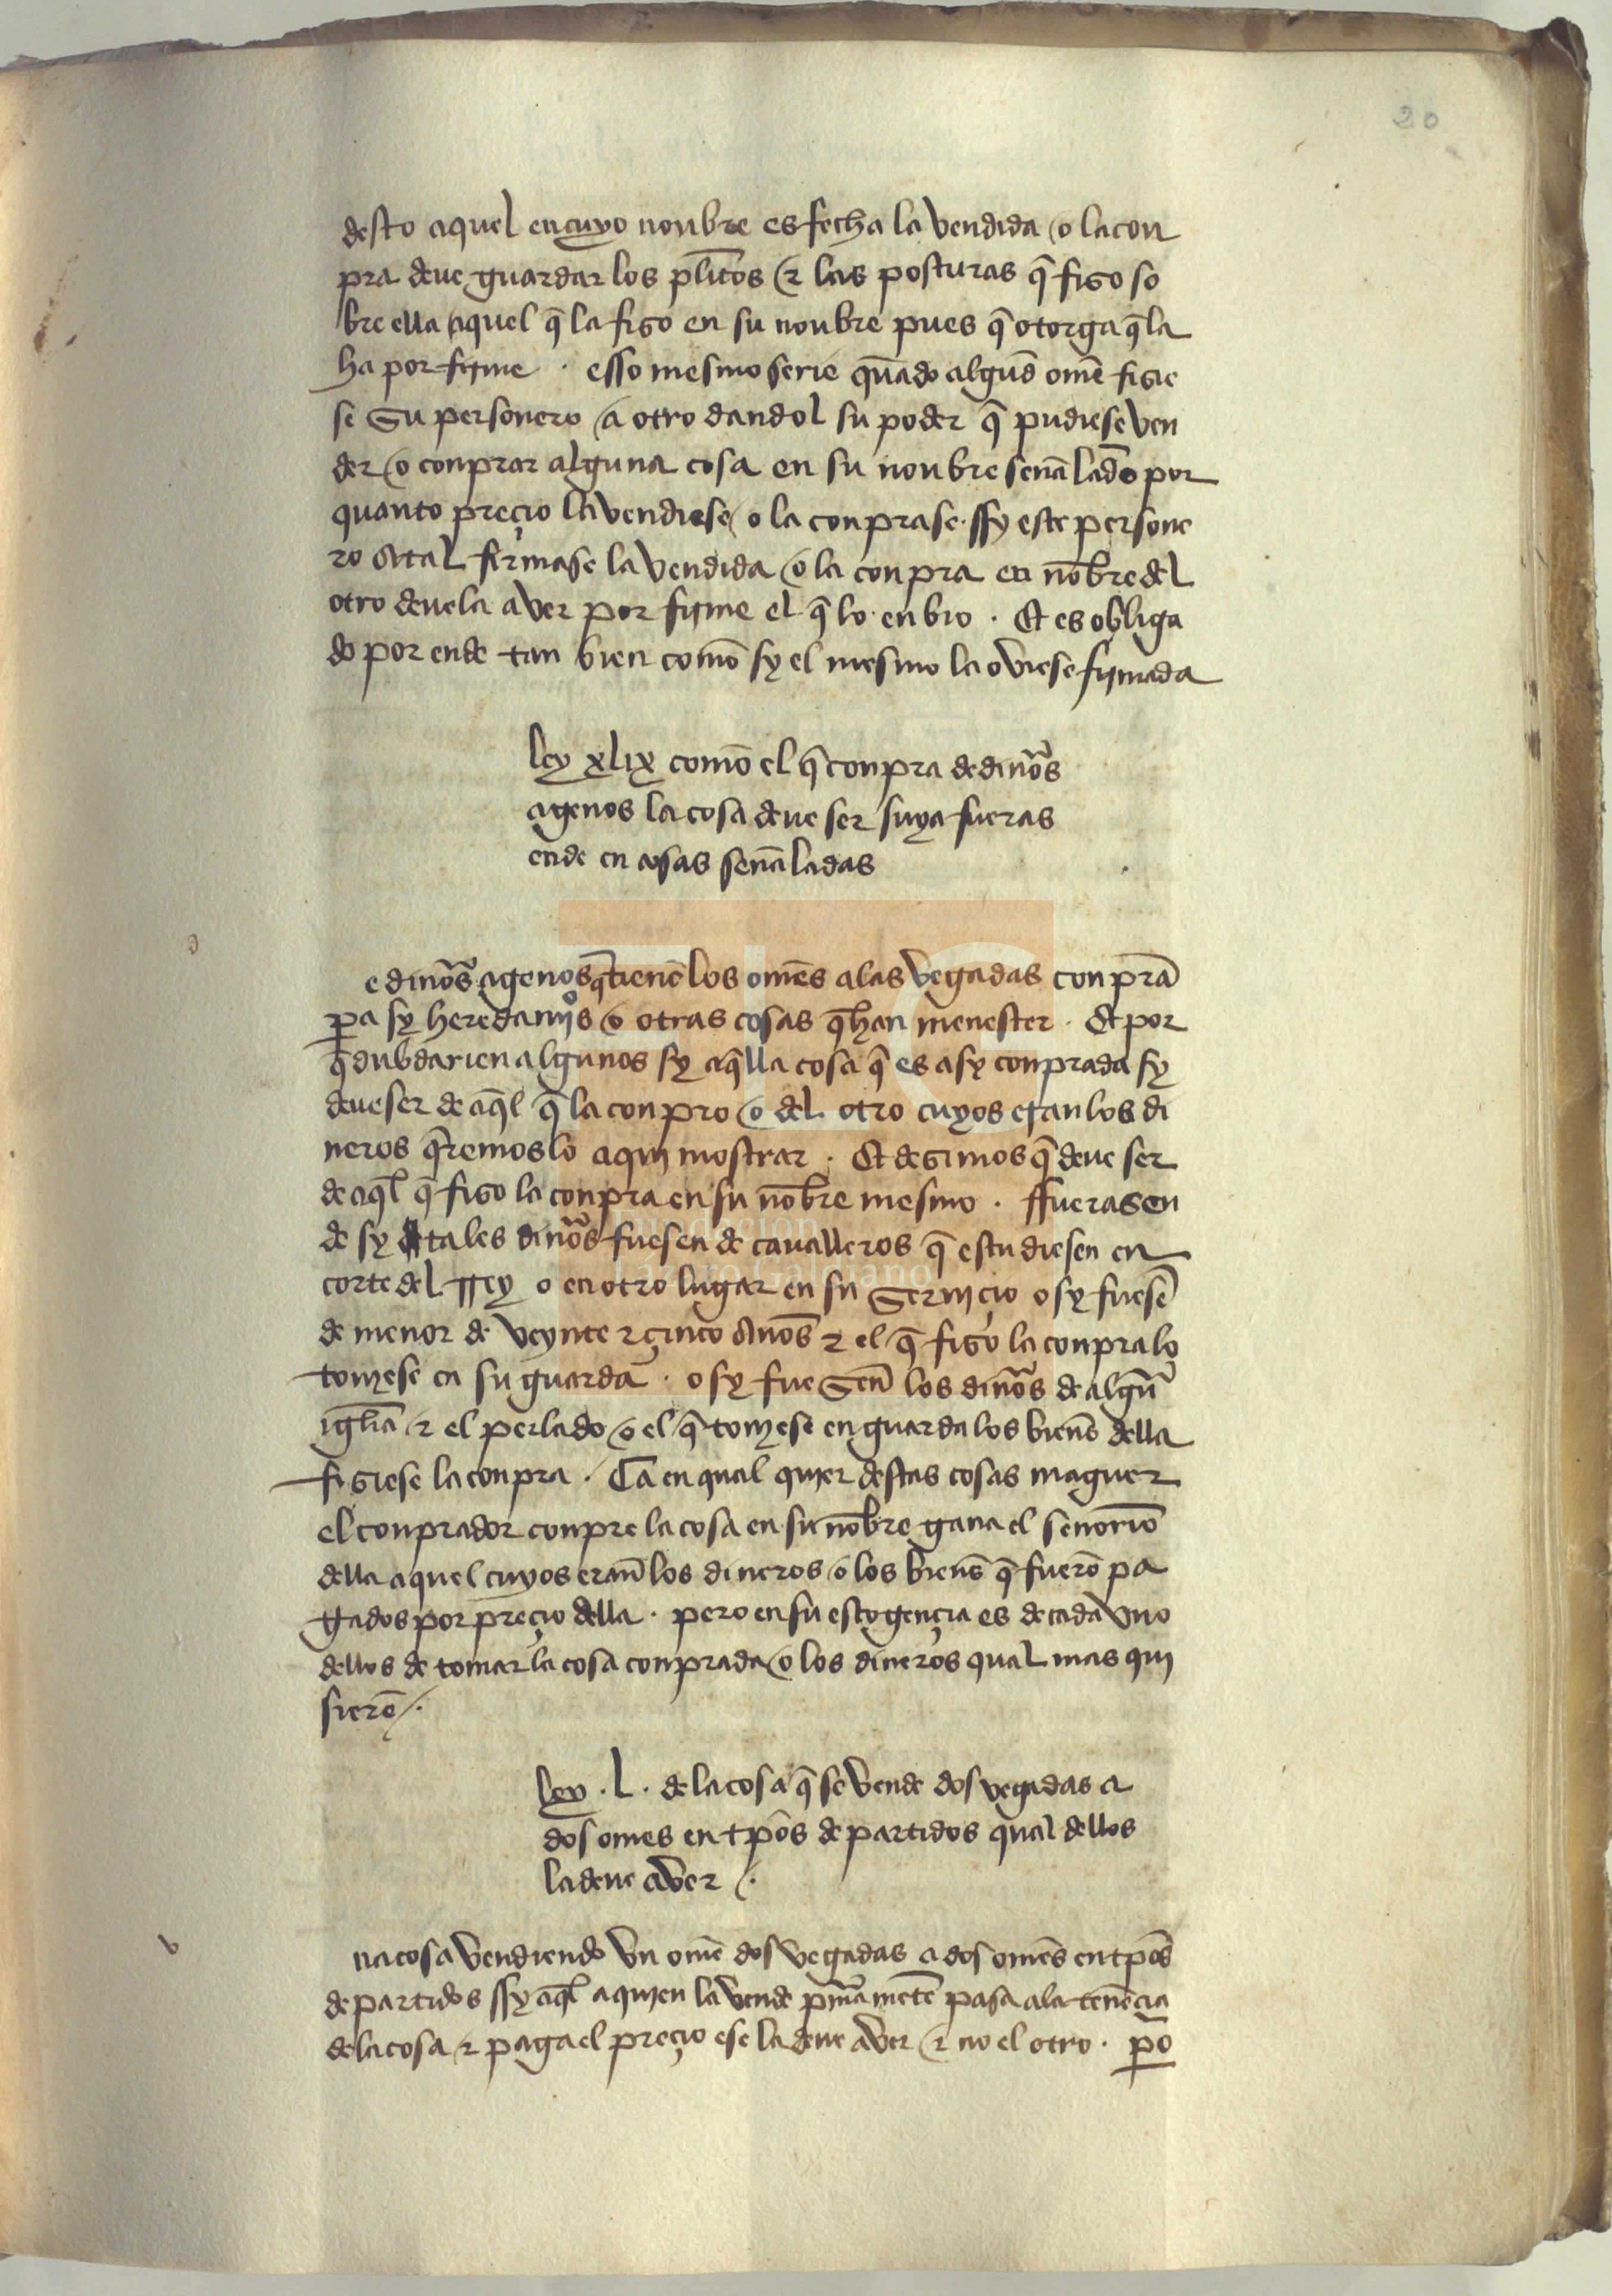 20
desto aquel en cuyo nonbre es fecha la vendida o la con
pra deue guardar los płitos ⁊ las posturas q̄ fiso so
bre ella aquel q̄ la fiso en su nonbre pues q̄ otorga q̄ la
ha por firme · esso mesmo serie quādo algūd omē fisie
se su personero a otro dandol su poder q̄ pudiese ven
der o conprar alguna cosa en su nonbre senā lado por
quanto preçio la vendiese o la conprase · ssy este persone
ro atal firmase la vendida o la conpra en nōbre del
otro deuela aver por firme el q̄ lo enbio · Et es obliga
do por ende tan bien comō sy el mesmo la oviese firmada
ley xlix comō el q̄ conpra de dinōs
agenos la cosa deue ser suya fueras
ende en cosas senāladas
e dinōs agenos q̄ tienē los omēs a las vegadas conprā
ꝑa sy heredamjos o otras cosas q̄ han menester · Et por
q̄ dubdarien algunos sy aq̄lla cosa q̄ es asy conprada sy
deue ser de aq̄l q̄ la conpro o del otro cuyos eran los di
neros q̄remoslo aquj mostrar · Et desimos q̄ deue ser
de aq̄l q̄ fiso la conpra en su nōbre mesmo · ffueras en
de sy atales dinōs fuesen de caualleros q̄ estudiesen en
corte del rrey o en otro lugar en su serujçio o sy fuesē
de menor de veynte ⁊ çinco anōs ⁊ el q̄ fiso la conpra lo
toujese en su guarda · o sy fuesen los dinōs de algūa
iglīa ⁊ el perlado o el q̄ toujese en guarda los bienēs della
fisiese la conpra · Ca en qual quier destas cosas maguer
el conprador conpre la cosa en su nōbre gana el senorīo
della aquel cuyos eran los dineros o los bienēs q̄ fuerō pa
gados por preçio della · pero en su escogençia es de cada vno
dellos de tomar la cosa conprada o los dineros qual mas qui
sierē ·
ley · L · de la cosa q̄ se vende dos vegadas a
dos omes en tpōs departidos qual dellos
la deue aver ·
na cosa vendiendo vn omē dos vegadas a dos omēs en tpōs
departidos ssy aq̄l a quien la vende pmāmētē pasa a la tenēçia
de la cosa ⁊ paga el preçio ese la deue aver ⁊ no el otro · ꝑo